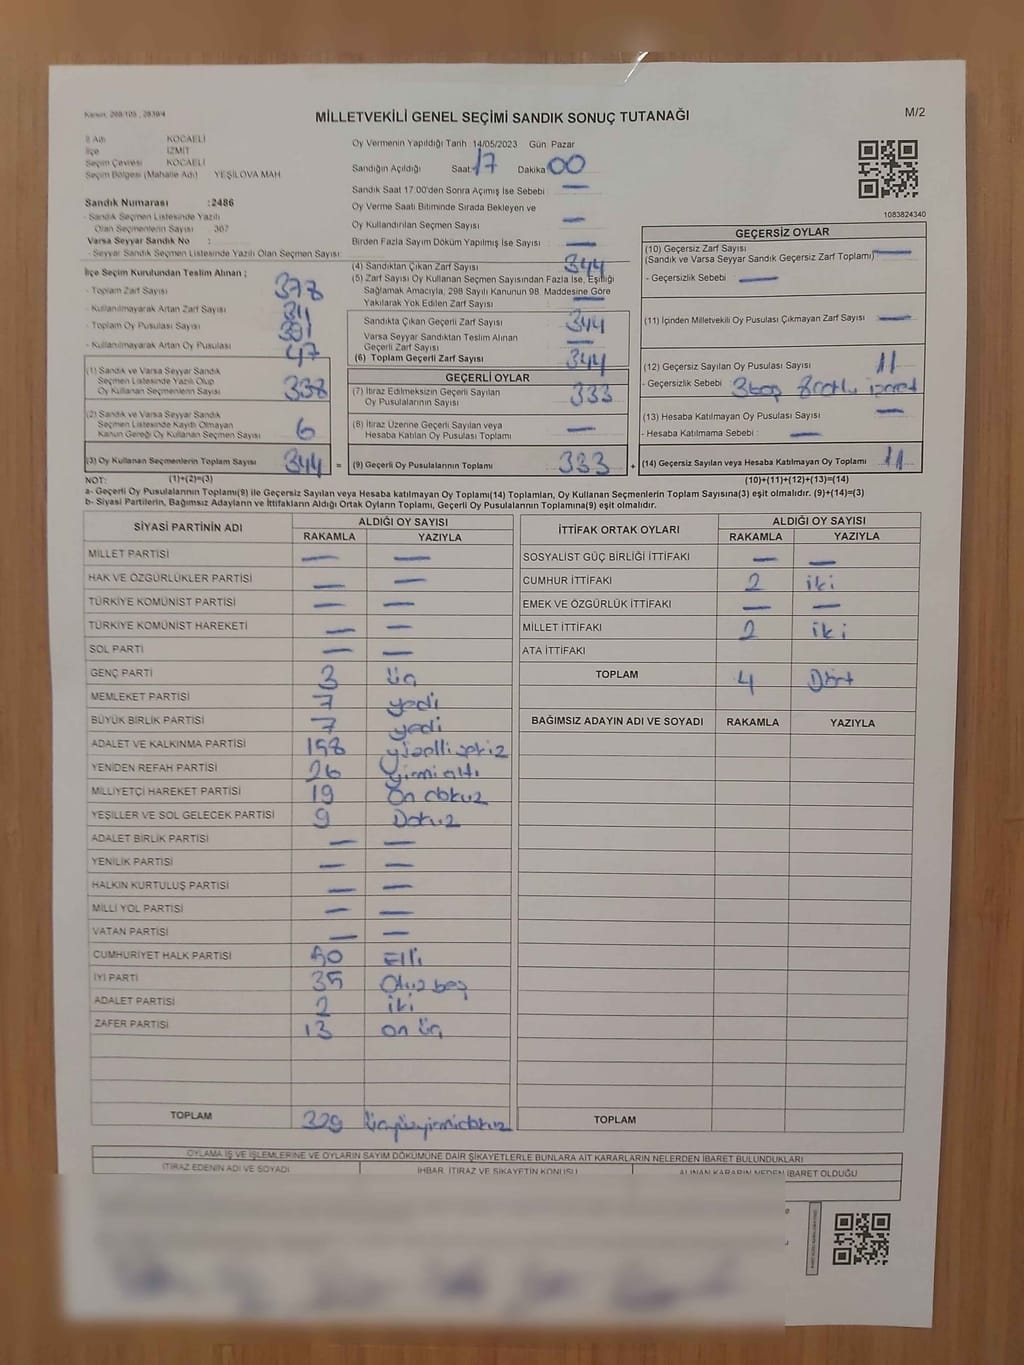 M/2
MİLLETVEKİLİ GENEL SEÇİMİ SANDIK SONUÇ TUTANAĞI
İl Adı KOCAELİ
İlçe İZMİT
Seçim Çevresi KOCAELİ
Seçim Bölgesi (Mahalle Adı) YEŞİLOVA MAH
Sandık Numarası :2486
- Sandık Seçmen Listesinde Yazılı
Olan Seçmenlerin Sayısı 367
Varsa Seyyar Sandık No :
- Seyyar Sandık Seçmen Listesinde Yazılı Olan Seçmen Sayısı:
İlçe Seçim Kurulundan Teslim Alınan ;
- Toplam Zarf Sayısı 378
- Kullanılmayarak Artan Zarf Sayısı
- Toplam Oy Pusulası Sayısı
- Kullanılmayarak Artan Oy Pusulası 47
(1) Sandık ve Varsa Seyyar Sandık
Seçmen Listesinde Yazılı Olup
Oy Kullanan Seçmenlerin Sayısı 338
(2) Sandık ve Varsa Seyyar Sandık
Seçmen Listesinde Kayıtlı Olmayan
Kanun Gereği Oy Kullanan Seçmen Sayısı 6
(3) Oy Kullanan Seçmenlerin Toplam Sayısı 344 =
Oy Vermenin Yapıldığı Tarih 14/05/2023 Gün Pazar
Sandığın Açıldığı Saat 17 Dakika 00
Sandık Saat 17:00'den Sonra Açılmış İse Sebebi —
Oy Verme Saati Bitiminde Sırada Bekleyen ve
Oy Kullandırılan Seçmen Sayısı —
Birden Fazla Sayım Döküm Yapılmış İse Sayısı —
(4) Sandıktan Çıkan Zarf Sayısı 344
(5) Zarf Sayısı Oy Kullanan Seçmen Sayısından Fazla İse, Eşitliği
Sağlamak Amacıyla, 298 Sayılı Kanunun 98. Maddesine Göre
Yakılarak Yok Edilen Zarf Sayısı —
Sandıkta Çıkan Geçerli Zarf Sayısı 344
Varsa Seyyar Sandıktan Teslim Alınan
Geçerli Zarf Sayısı —
(6) Toplam Geçerli Zarf Sayısı 344
GEÇERLİ OYLAR
(7) İtiraz Edilmeksizin Geçerli Sayılan
Oy Pusulalarının Sayısı 333
(8) İtiraz Üzerine Geçerli Sayılan veya
Hesaba Katılan Oy Pusulası Toplamı —
(9) Geçerli Oy Pusulalarının Toplamı 333 +
1083824340
GEÇERSİZ OYLAR
(10) Geçersiz Zarf Sayısı
(Sandık ve Varsa Seyyar Sandık Geçersiz Zarf Toplamı) —
- Geçersizlik Sebebi —
(11) İçinden Milletvekili Oy Pusulası Çıkmayan Zarf Sayısı —
(12) Geçersiz Sayılan Oy Pusulası Sayısı 11
- Geçersizlik Sebebi 3 boş
(13) Hesaba Katılmayan Oy Pusulası Sayısı —
- Hesaba Katılmama Sebebi : —
(14) Geçersiz Sayılan veya Hesaba Katılmayan Oy Toplamı 11
NOT: (1)+(2)=(3) (10)+(11)+(12)+(13)=(14)
a- Geçerli Oy Pusulalarının Toplamı(9) ile Geçersiz Sayılan veya Hesaba katılmayan Oy Toplamı(14) Toplamları, Oy Kullanan Seçmenlerin Toplam Sayısına(3) eşit olmalıdır. (9)+(14)=(3)
b- Siyasi Partilerin, Bağımsız Adayların ve İttifakların Aldığı Ortak Oyların Toplamı, Geçerli Oy Pusulalarının Toplamına(9) eşit olmalıdır.
SİYASİ PARTİNİN ADI ALDIĞI OY SAYISI
RAKAMLA YAZIYLA
MİLLET PARTİSİ — —
HAK VE ÖZGÜRLÜKLER PARTİSİ — —
TÜRKİYE KOMÜNİST PARTİSİ — —
TÜRKİYE KOMÜNİST HAREKETİ — —
SOL PARTİ — —
GENÇ PARTİ 3 üç
MEMLEKET PARTİSİ 7 yedi
BÜYÜK BİRLİK PARTİSİ 7 yedi
ADALET VE KALKINMA PARTİSİ 158 yüzellisekiz
YENİDEN REFAH PARTİSİ 26 yirmialtı
MİLLİYETÇİ HAREKET PARTİSİ 19 On dokuz
YEŞİLLER VE SOL GELECEK PARTİSİ 9 Dokuz
ADALET BİRLİK PARTİSİ — —
YENİLİK PARTİSİ — —
HALKIN KURTULUŞ PARTİSİ — —
MİLLİ YOL PARTİSİ — —
VATAN PARTİSİ — —
CUMHURİYET HALK PARTİSİ 50 Elli
İYİ PARTİ 35 Otuz beş
ADALET PARTİSİ 2 iki
ZAFER PARTİSİ 13 on üç
TOPLAM 329 üçyüzyirmidokuz
İTTİFAK ORTAK OYLARI ALDIĞI OY SAYISI
RAKAMLA YAZIYLA
SOSYALİST GÜÇ BİRLİĞİ İTTİFAKI — —
CUMHUR İTTİFAKI 2 iki
EMEK VE ÖZGÜRLÜK İTTİFAKI — —
MİLLET İTTİFAKI 2 iki
ATA İTTİFAKI
TOPLAM 4 Dört
BAĞIMSIZ ADAYIN ADI VE SOYADI RAKAMLA YAZIYLA
TOPLAM
OYLAMA İŞ VE İŞLEMLERİNE VE OYLARIN SAYIM DÖKÜMÜNE DAİR ŞİKAYETLERLE BUNLARA AİT KARARLARIN NELERDEN İBARET BULUNDUKLARI
İTİRAZ EDENİN ADI VE SOYADI İHBAR, İTİRAZ VE ŞİKAYETİN KONUSU ALINAN KARARIN NEDEN İBARET OLDUĞU